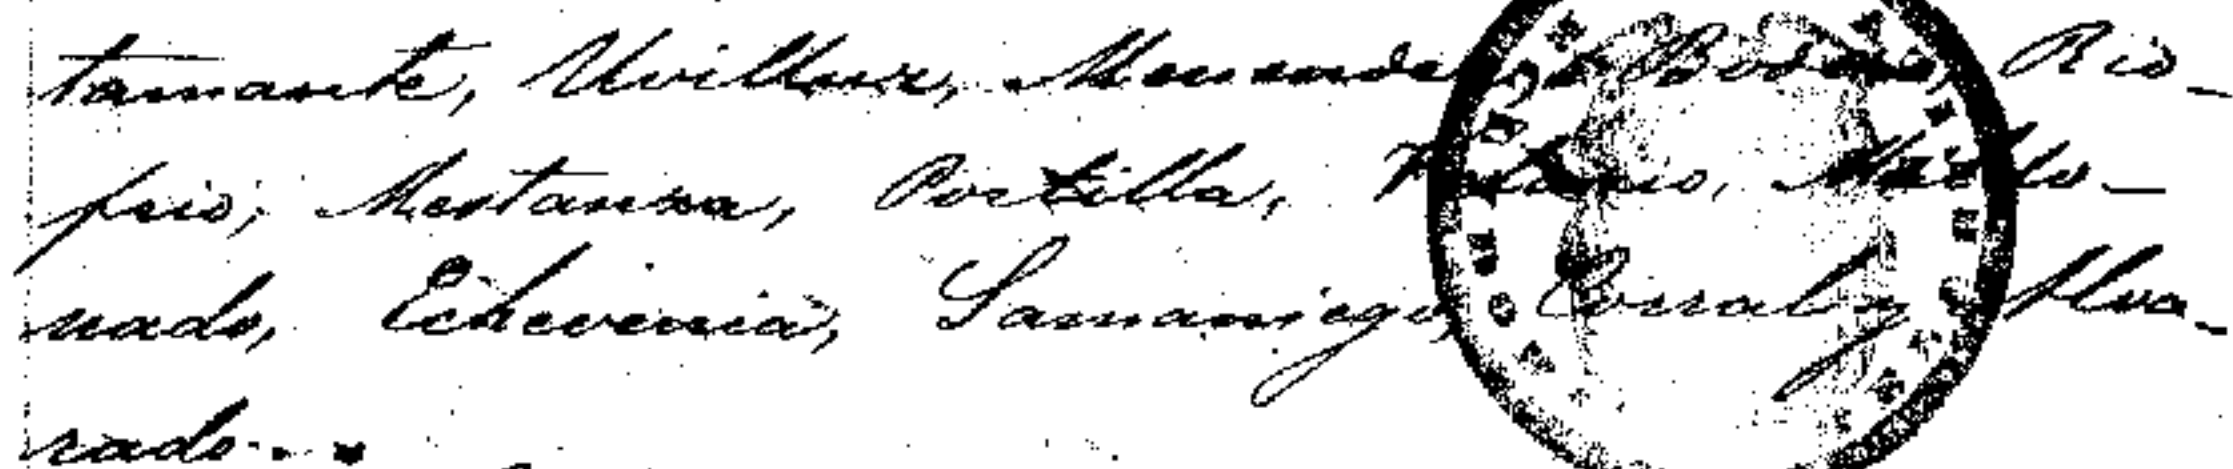 tamante, Uvilluz, Menende Bodero, Rio-
frio, Mestanza, Portilla, Maldo-
nado, Echeverria, Samaniego, Corral y Alva-
rado.